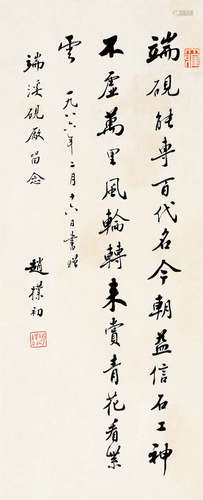 端硯能專百代名今朝益信石工神
不虛萬里風輪轉来賞青花看紫
雲
一九八六年二月十六日書贈
端溪硯廠留念
趙樸初